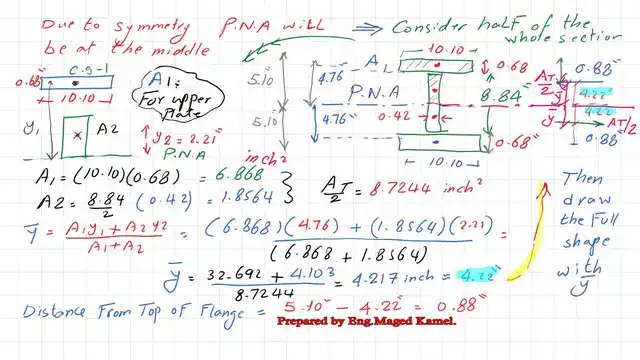 Due to symmetry P.N.A will ⇒ Consider half of the
be at the middle whole section
10.10
C.g-1 0.68" A1:
For upper
Plate
10.10
y1 A2 y2=2.21"
P.N.A
5.10" 4.76" A1 0.68
P.N.A 8.84"
5.10" 4.76" 0.42 0.68"
10.10
AT/2 0.88"
ȳ 4.22"
ȳ 4.22
AT/2
0.88"
inch²
A1 = (10.10)(0.68) = 6.868
A2 = 8.84/2 (0.42) = 1.8564
AT/2 = 8.7244 inch²
ȳ = A1y1 + A2y2 / A1+A2 = (6.868)(4.76) + (1.8564)(2.21) / (6.868 + 1.8564) =
ȳ = 32.692 + 4.103 / 8.7244 = 4.217 inch = 4.22"
Then
draw
the Full
shape
with
ȳ
Distance From Top of Flange = 5.10" - 4.22" = 0.88"
Prepared by Eng.Maged Kamel.